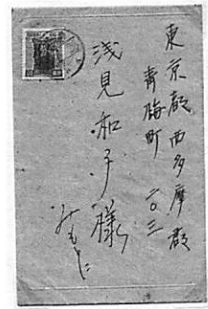 東京都西多摩郡
青梅町 二〇三
浅見和子様
みもとに